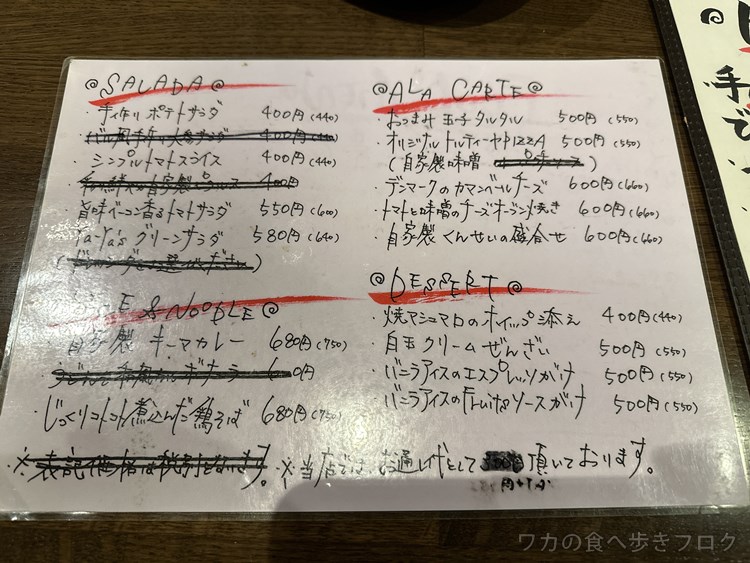 SALADA
・手作りポテトサラダ 400円(440)
400円(440)
・シンプルトマトスライス 400円(440)
400円
・旨味ベーコン香るトマトサラダ 550円(600)
・Ya-Ya's グリーンサラダ 580円(640)
& NOODLE
自家製 キーマカレー 680円(750)
・じっくりコトコト煮込んだ鶏そば 680円(750)
ALA CARTE
・おつまみ玉子タルタル 500円(550)
・オリジナルトルティーヤPIZZA 500円(550)
(自家製味噌 )
・デンマークのカマンベールチーズ 600円(660)
・トマトと味噌のチーズオーブン焼き 600円(660)
・自家製くんせいの盛合せ 600円(660)
DESSERT
・焼マシュマロのホイップ添え 400円(440)
・白玉クリームぜんざい 500円(550)
・バニラアイスのエスプレッソがけ 500円(550)
・バニラアイスのFruitsソースがけ 500円(550)
※表記価格は税別となります。
※当店では お通し代として 頂いております。
ワカの食べ歩きブログ